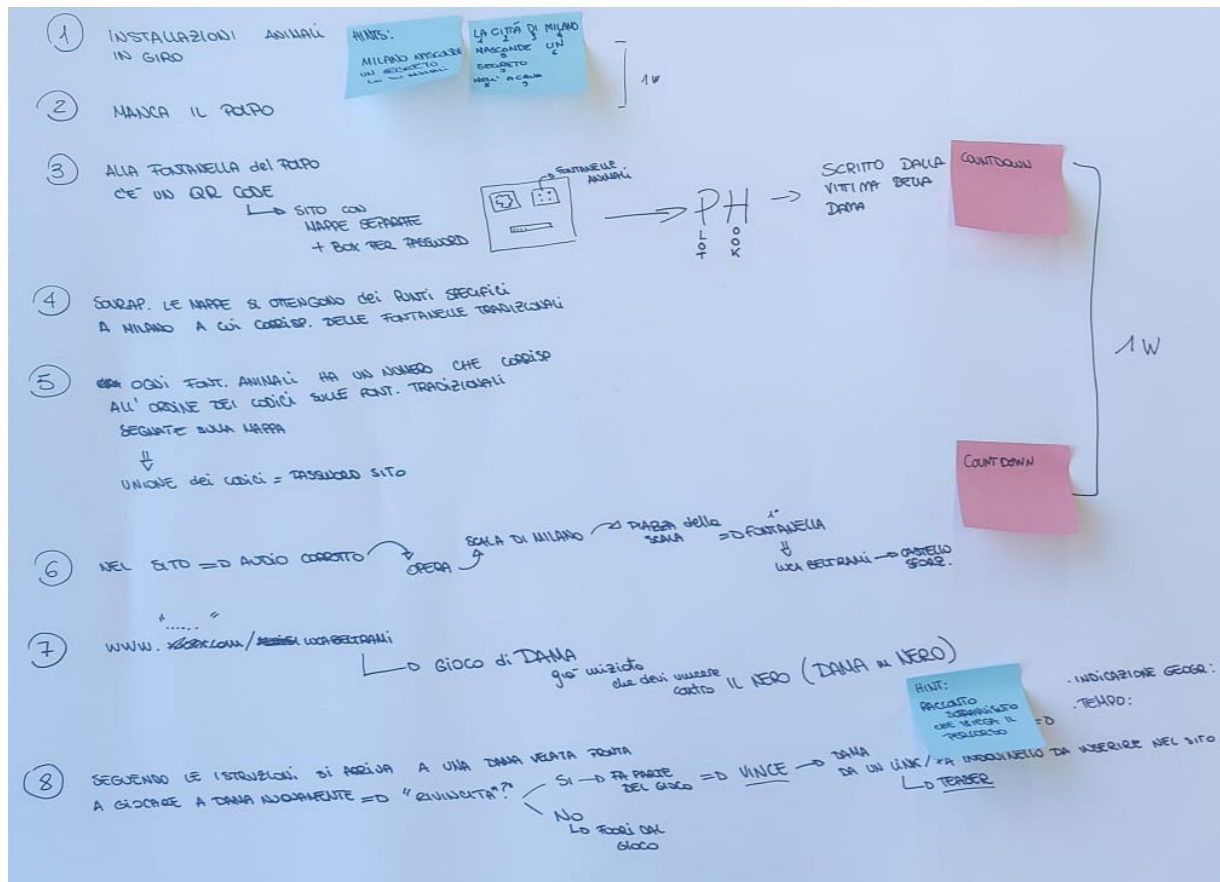 1 INSTALLAZIONI ANIMALI
IN GIRO
HINTS:
MILANO NASCONDE
UN SEGRETO
LA CITTÀ DI MILANO
1 2 3 4
NASCONDE UN
5 6
SEGRETO
7
NELL' ACQUA
8 9
1W
2 MANCA IL POLPO
3 ALLA FONTANELLA del POLPO
C'E' UN QR CODE
SITO CON
MAPPE SEPARATE
+ BOX PER PASSWORD
FONTANELLE
ANIMALI
PH
LOT
OOK
SCRITTO DALLA
VITTIMA DELLA
DAMA
COUNTDOWN
4 SOVRAP. LE MAPPE SI OTTENGONO dei PUNTI SPECIFICI
A MILANO A CUI CORRISP. DELLE FONTANELLE TRADIZIONALI
5 OGNI FONT. ANIMALI HA UN NUMERO CHE CORRISP
ALL' ORDINE DEI CODICI SULLE FONT. TRADIZIONALI
SEGNATE SULLA MAPPA
UNIONE dei CODICI = PASSWORD SITO
1W
COUNTDOWN
6 NEL SITO => AUDIO CORROTTO
OPERA
SCALA DI MILANO
PIAZZA della
SCALA
=> 1° FONTANELLA
LUCA BELTRAMI
CASTELLO
SFORZ.
7 WWW. "......" /LUCABELTRAMI
GIOCO di DAMA
già iniziato
che devi vincere
contro IL NERO (DAMA in NERO)
HINT:
RACCONTO
SOPRANNISTO
CHE SPIEGA IL
PERCORSO
=>
. INDICAZIONE GEOGR:
. TEMPO:
8 SEGUENDO LE ISTRUZIONI SI ARRIVA A UNA DAMA VELATA PRONTA
A GIOCARE A DAMA NUOVAMENTE => "RIVINCITA"?
SI -> FA PARTE
DEL GIOCO => VINCE -> DAMA
DA UN LINK/ INDOVINELLO DA INSERIRE NEL SITO
TEASER
NO
FUORI DAL
GIOCO